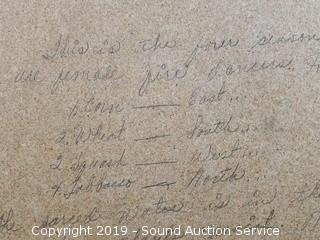 This is the four season
are female fire dancers.
1. Corn — East..
2. Wheat — South...
2. Squash — West...
4. Tobacco — North...
sacred is in the
Copyright 2019 - Sound Auction Service